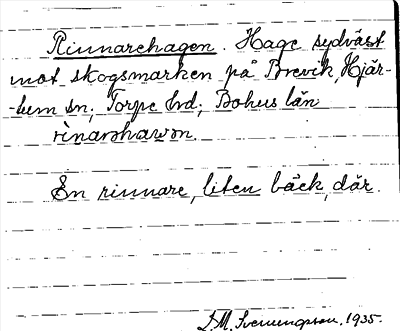 Rinnarehagen. Hage sydväst
mot skogsmarken på Brevik, Hjär-
-tum sn; Torpe hd; Bohus län
rinarehawən.
En rinnare, liten bäck, där.
S. M. Svenungsson, 1935.